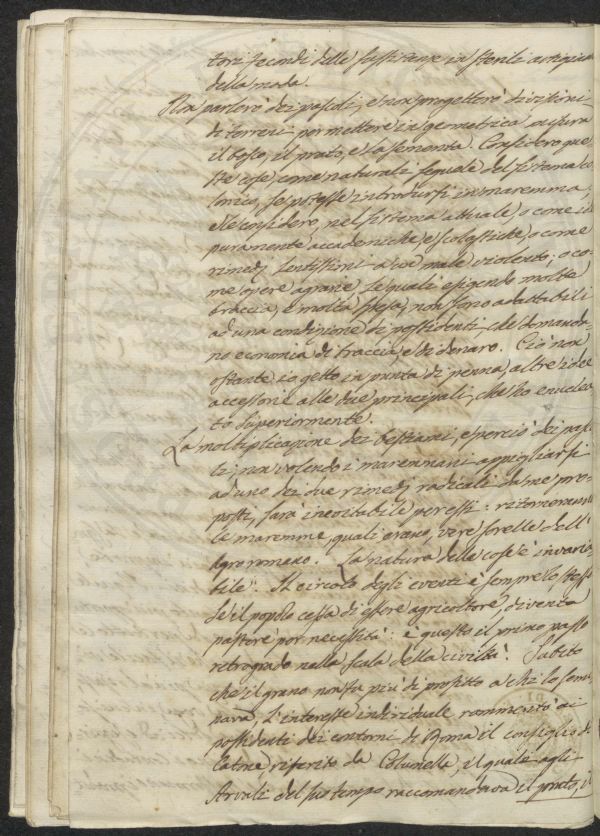 tori secondi delle sussistenze in sterili artigiani
della moda.
Non parlerò dei pascoli, e non progetterò divisioni
di terreni, per mettere in geometrica misura
il bosco, il prato, e la sementa. Considero que
ste cose, come naturali seguele del sistema co
lonico, se potesse introdursi in maremma;
e le considero, nel sistema attuale, o come idee
puramente accademiche, e scolastiche, o come
rimedj lentissimi a un male violento; o co
me opere agrarie, le quali esigendo molte
braccia, e molta spesa, non sono adattabili
ad una condizione di possidenti, che domanda
no economia di braccia, e di denaro. Ciò non
ostante io getto in punta di penna, altre idee
accessorie alle due principali, che ho enuclea
to superiormente.
La moltiplicazione dei bestiami, e perciò dei pasco
li, non volendo i maremmani appigliarsi
ad uno dei due rimedj radicali da me pro
posti, sarà inevitabile per essi: ritorneranno
le maremme, quali erano, vere sorelle dell'
Agro romano. La natura delle cose è invaria
bile. Il circolo degli eventi è sempre lo stesso
Se il popolo cessa di essere agricoltore, diventa
pastore per necessità: è questo il primo passo
retrogrado nella scala della civiltà. Subito
che il grano non fu più di profitto a chi lo semi
nava, l'interesse individuale rammentò ai
possidenti dei contorni di Roma il consiglio di
Catone, riferito da Columella, il quale agli
Arvali del suo tempo raccomandava il prato, il